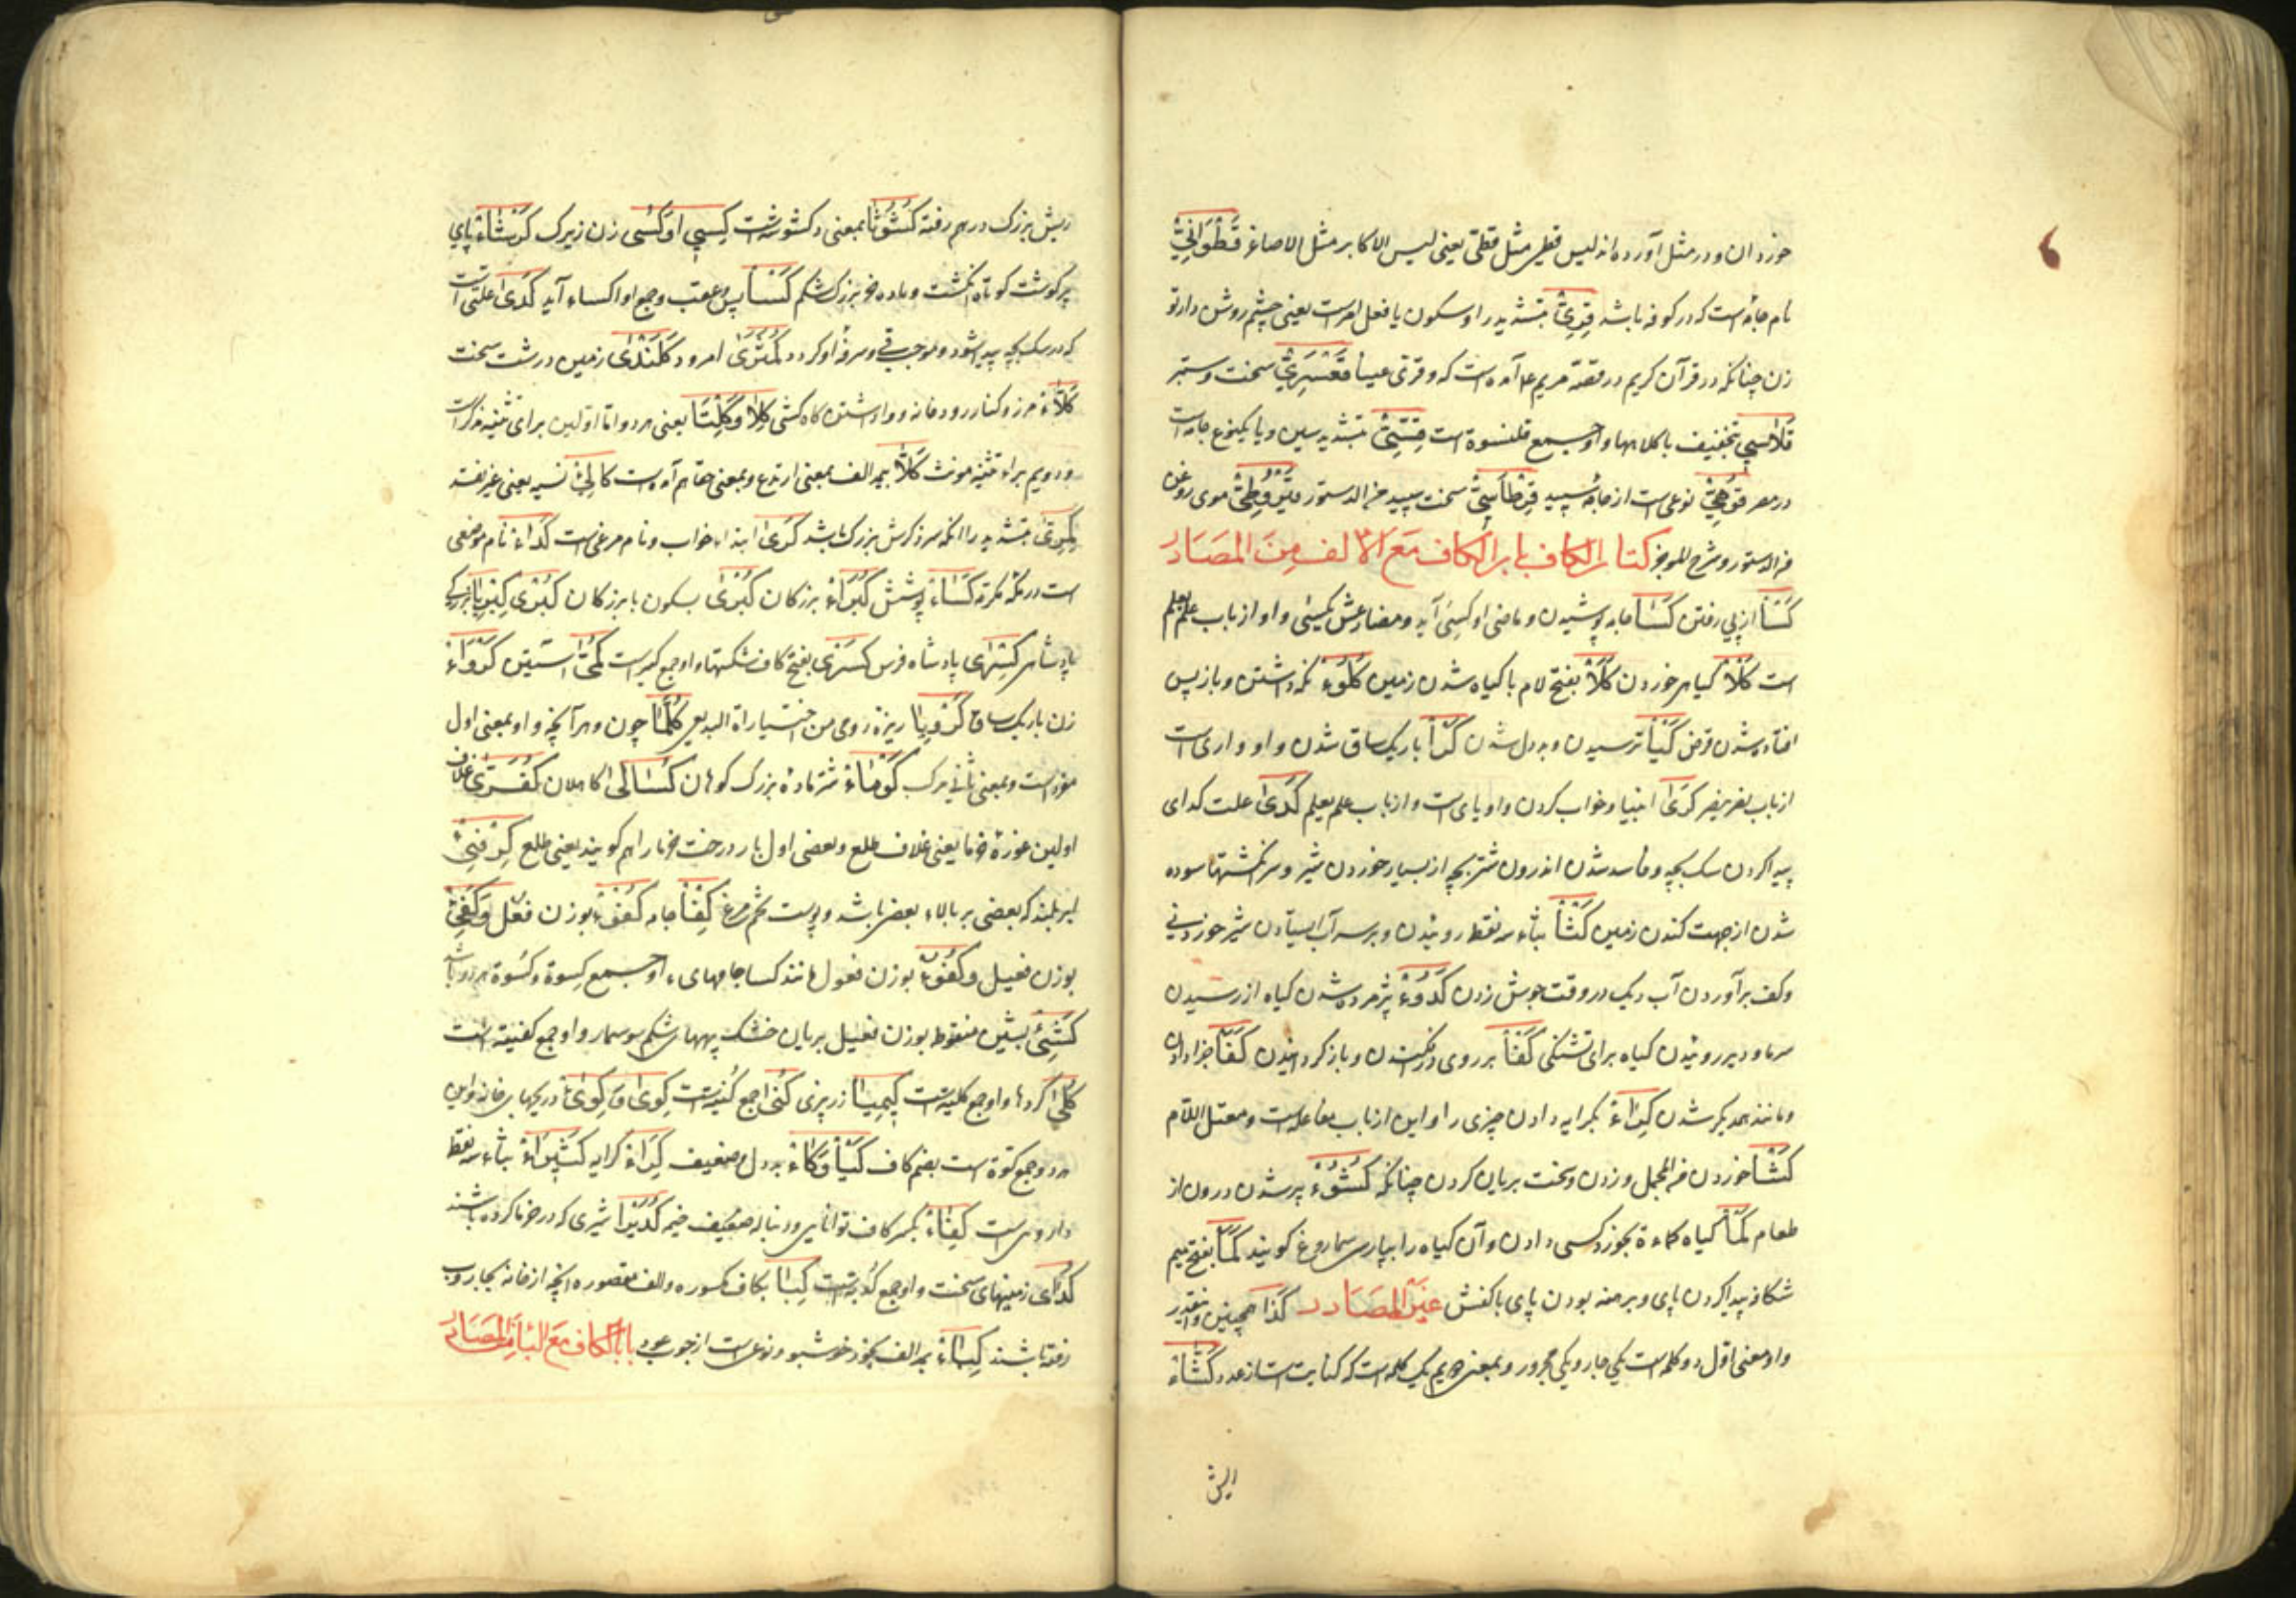 خوردان و در مثل آورده اند لیس قطی مثل قطی یعنی لیس الاکابر مثل الاصاغر قَطَوَانِیّ
نام جایست که در کوفه باشد قِرِیّ بتشدید را و سکون یا فعل امرست یعنی چشم روشن دار تو
زن چنانکه در قرآن کریم در قصه مریم ع آمده است که و قری عینا قَعْسَرِیّ سخت و ستبر
قَلَاسِی بتخفیف یا کلاهها و او جمع قلنسوة است قِسِّیّ بتشدید سین و یا یکنوع جامه است
در مصر قُوهِیّ نوعی است از جامهٔ سپید سخت سپید من الدستور موی روغن
من الدستور و شرح الموجز کتاب الکاف باب الکاف مَعَ الالف مِنَ المصَادِر
کَسْأ از پی رفتن کَسَا جامه پوشیدن و ماضی او کسی آید و مضارعش یکسی و او از باب علم یعلم
است کَلْأ گیاه خوردن کَلَأ بفتح لام با گیاه شدن زمین کُلُوء نگه داشتن و باز پس
افتاده شدن قرض کَیْأ ترسیدن و بددل شدن کَرَا باریک ساق شدن و او واوی است
از باب نصر ینصر کَرَی خواب کردن و او یای است و از باب علم یعلم کَدَی علت کدای
پیدا کردن سگ بچه و فاسد شدن اندرون شتر بچه از بسیار خوردن شیر و سر انگشتها سوده
شدن از جهت کندن زمین کَثْأ بثاء سه نقط روئیدن و بر سر آب ایستادن شیر خوردنی
و کف برآوردن آب دیگ در وقت جوش زدن کُدُوء پژمرده شدن گیاه از رسیدن
سرما و دیر روئیدن گیاه برای تشنگی کَفْأ بر روی در افکندن و باز گردانیدن جزا دادن
و مانند همدیگر شدن کِرَاء بکرایه دادن چیزی را و این از باب مفاعله است و معتل اللام
کَشْأ خوردن من المجمل و زدن و سخت بریان کردن چنانکه کُشُوء پر شدن درون از
طعام کَمْأ گیاه کماءة بخورد کسی دادن و آن گیاه را بپارسی سماروغ گویند کَمَأ بفتح میم
شکاف پیدا کردن پای و برهنه بودن پای با کفش غیرُ المصَادر کَذَا همچنین و اینقدر
و او معنی اول دو کلمه است یکی جار و یکی مجرور و بمعنی دویم یک کلمه است که کنایت است از عدد کَثّاء
ریش بزرگ درهم رفته کُشُوثَا بمعنی کشوث است کِیسِی او کُسَی زن زیرک کَرْشَاء پای
پر گوشت کوتاه انگشت و ماده خر بزرگ شکم کَسْأ پس و عقب و جمع او اکساء آید کَدَی علتی است
که در سگ بچه پیدا شود و موجب قی و سرفهٔ او گردد کُمَّثْرَی امرود کَلَنْدَی زمین درشت سخت
کَلّاء مرز و کنار رودخانه و واداشتن گاه کشتی کِلَا و کِلْتَا یعنی هر دو اما اولین برای تثنیه مذکرست
و دویم براء تثنیه مونث کَلّا بی مد الف بمعنی ارتدع و بمعنی حقا هم آمده است کَالِئ نسیه یعنی غیر نقد
بتشدید را آنکه سر ذکرش بزرگ باشد کَرَی ابتداء خواب و نام مرغی است کَدَاء نام موضعی
است در مکه مکرمه کِسَاء پوشش کُبَرَاء بزرگان کُبْرَی بسکون با بزرگان کِبْرِیَا بزرگی
پادشاهی کِسْرَی پادشاه فرس کسری بفتح کاف شکستها و او جمع کسر است کُمَّا آستین کَرْوَاء
زن باریک ساق کَرَوِیَا زیرهٔ رومی من اختیاراة البدیعی کُلَّمَا چون و هر آنچه و او بمعنی اول
مفردست و بمعنی ثانی مرکب کَوْمَاء شتر مادهٔ بزرگ کوهان کُسَالَی کاهلان کُفُرَّی غلاف
اولین غورهٔ خرما یعنی غلاف طلع و بعضی اول بار درخت خرما را هم گویند یعنی طلع کِرْفِئ
ابر بلند که بعضی بر بالاء بعض باشد و پوست تخم مرغ جامه کُفُؤ بوزن فعل و کَفِیء
بوزن فعیل و کَفُوء بوزن فعول مانند کسا جامهای او جمع کِسوة و کُسوة هر دو باشد
کَشِیء بشین منقوط بوزن فعیل بریان خشک پیهها شکم سوسمار و او جمع کشیة است
کُلَی گردها و او جمع کلیه است کِیمِیَا زر پزی کُنَی جمع کُنیت است کِوَی و کِوَاء دریچهای خانه و این
هر دو جمع کوة است بضم کاف کَیْأ و کَاء بددل و ضعیف کِرَاء کرایه کَثِیرَاء بثاء سه نقط
دارویی است کِفَاء بکسر کاف توانایی و دنباله خیمه شیری که در خرما کرده باشند
کُدَای زمینهای سخت و او جمع کُدیة است کِبَا بکاف مکسوره و الف مقصوره آنچه از خانه بجاروب
رفته باشند کِبَاء بمد الف بخور خوشبو و نوعی است از چوب عود بابُ الکاف مَعَ البَاءِ مِنَ المصَادِر
الیش